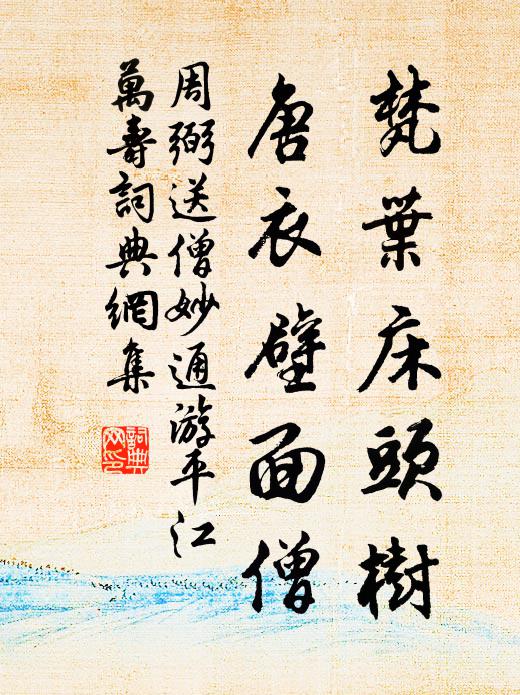 梵葉床頭樹
唐衣壁面僧
周弼送僧妙通游平江
萬壽詞典網集
詞典網印